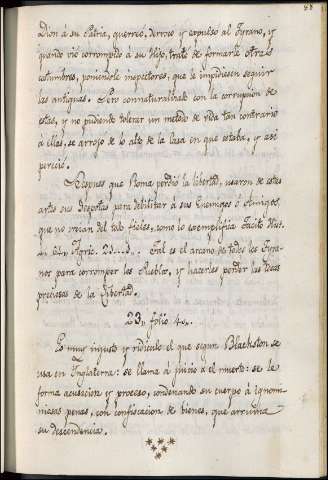 88
Dion á su Patria, guerreó, derrocó y expulsó al Tyrano, y
quando vió corrompido á su Hijo, trató de formarle otras
costumbres, poniendole inspectores, que le impidiesen seguir
las antiguas. Pero connaturalizado con la corrupcion de
estas, y no pudiendo tolerar un metodo de vida tan contrario
á ellas, se arrojó de lo alto de la Casa en que estaba, y asi
pereció.
Despues que Roma perdió la libertad, usaron de estas
artes sus Despotas para debilitar á sus Enemigos ó Amigos,
que no creian del todo fieles, como lo exemplifica Tacito Hist.
4. 64. Agric. 21. Tal es el arcano de todos los Tyra-
nos para corromper los Pueblos, y hacerles perder las ideas
preciosas de la Libertad.
23, folio 4.
Es muy injusto y ridiculo el que segun Blackston se
usa en Ynglaterra: se llama á juicio á el muerto: se le
forma acusacion y proceso, condenando su cuerpo á ignomi-
niosas penas, con confiscacion de bienes, que arruina
su descendencia.